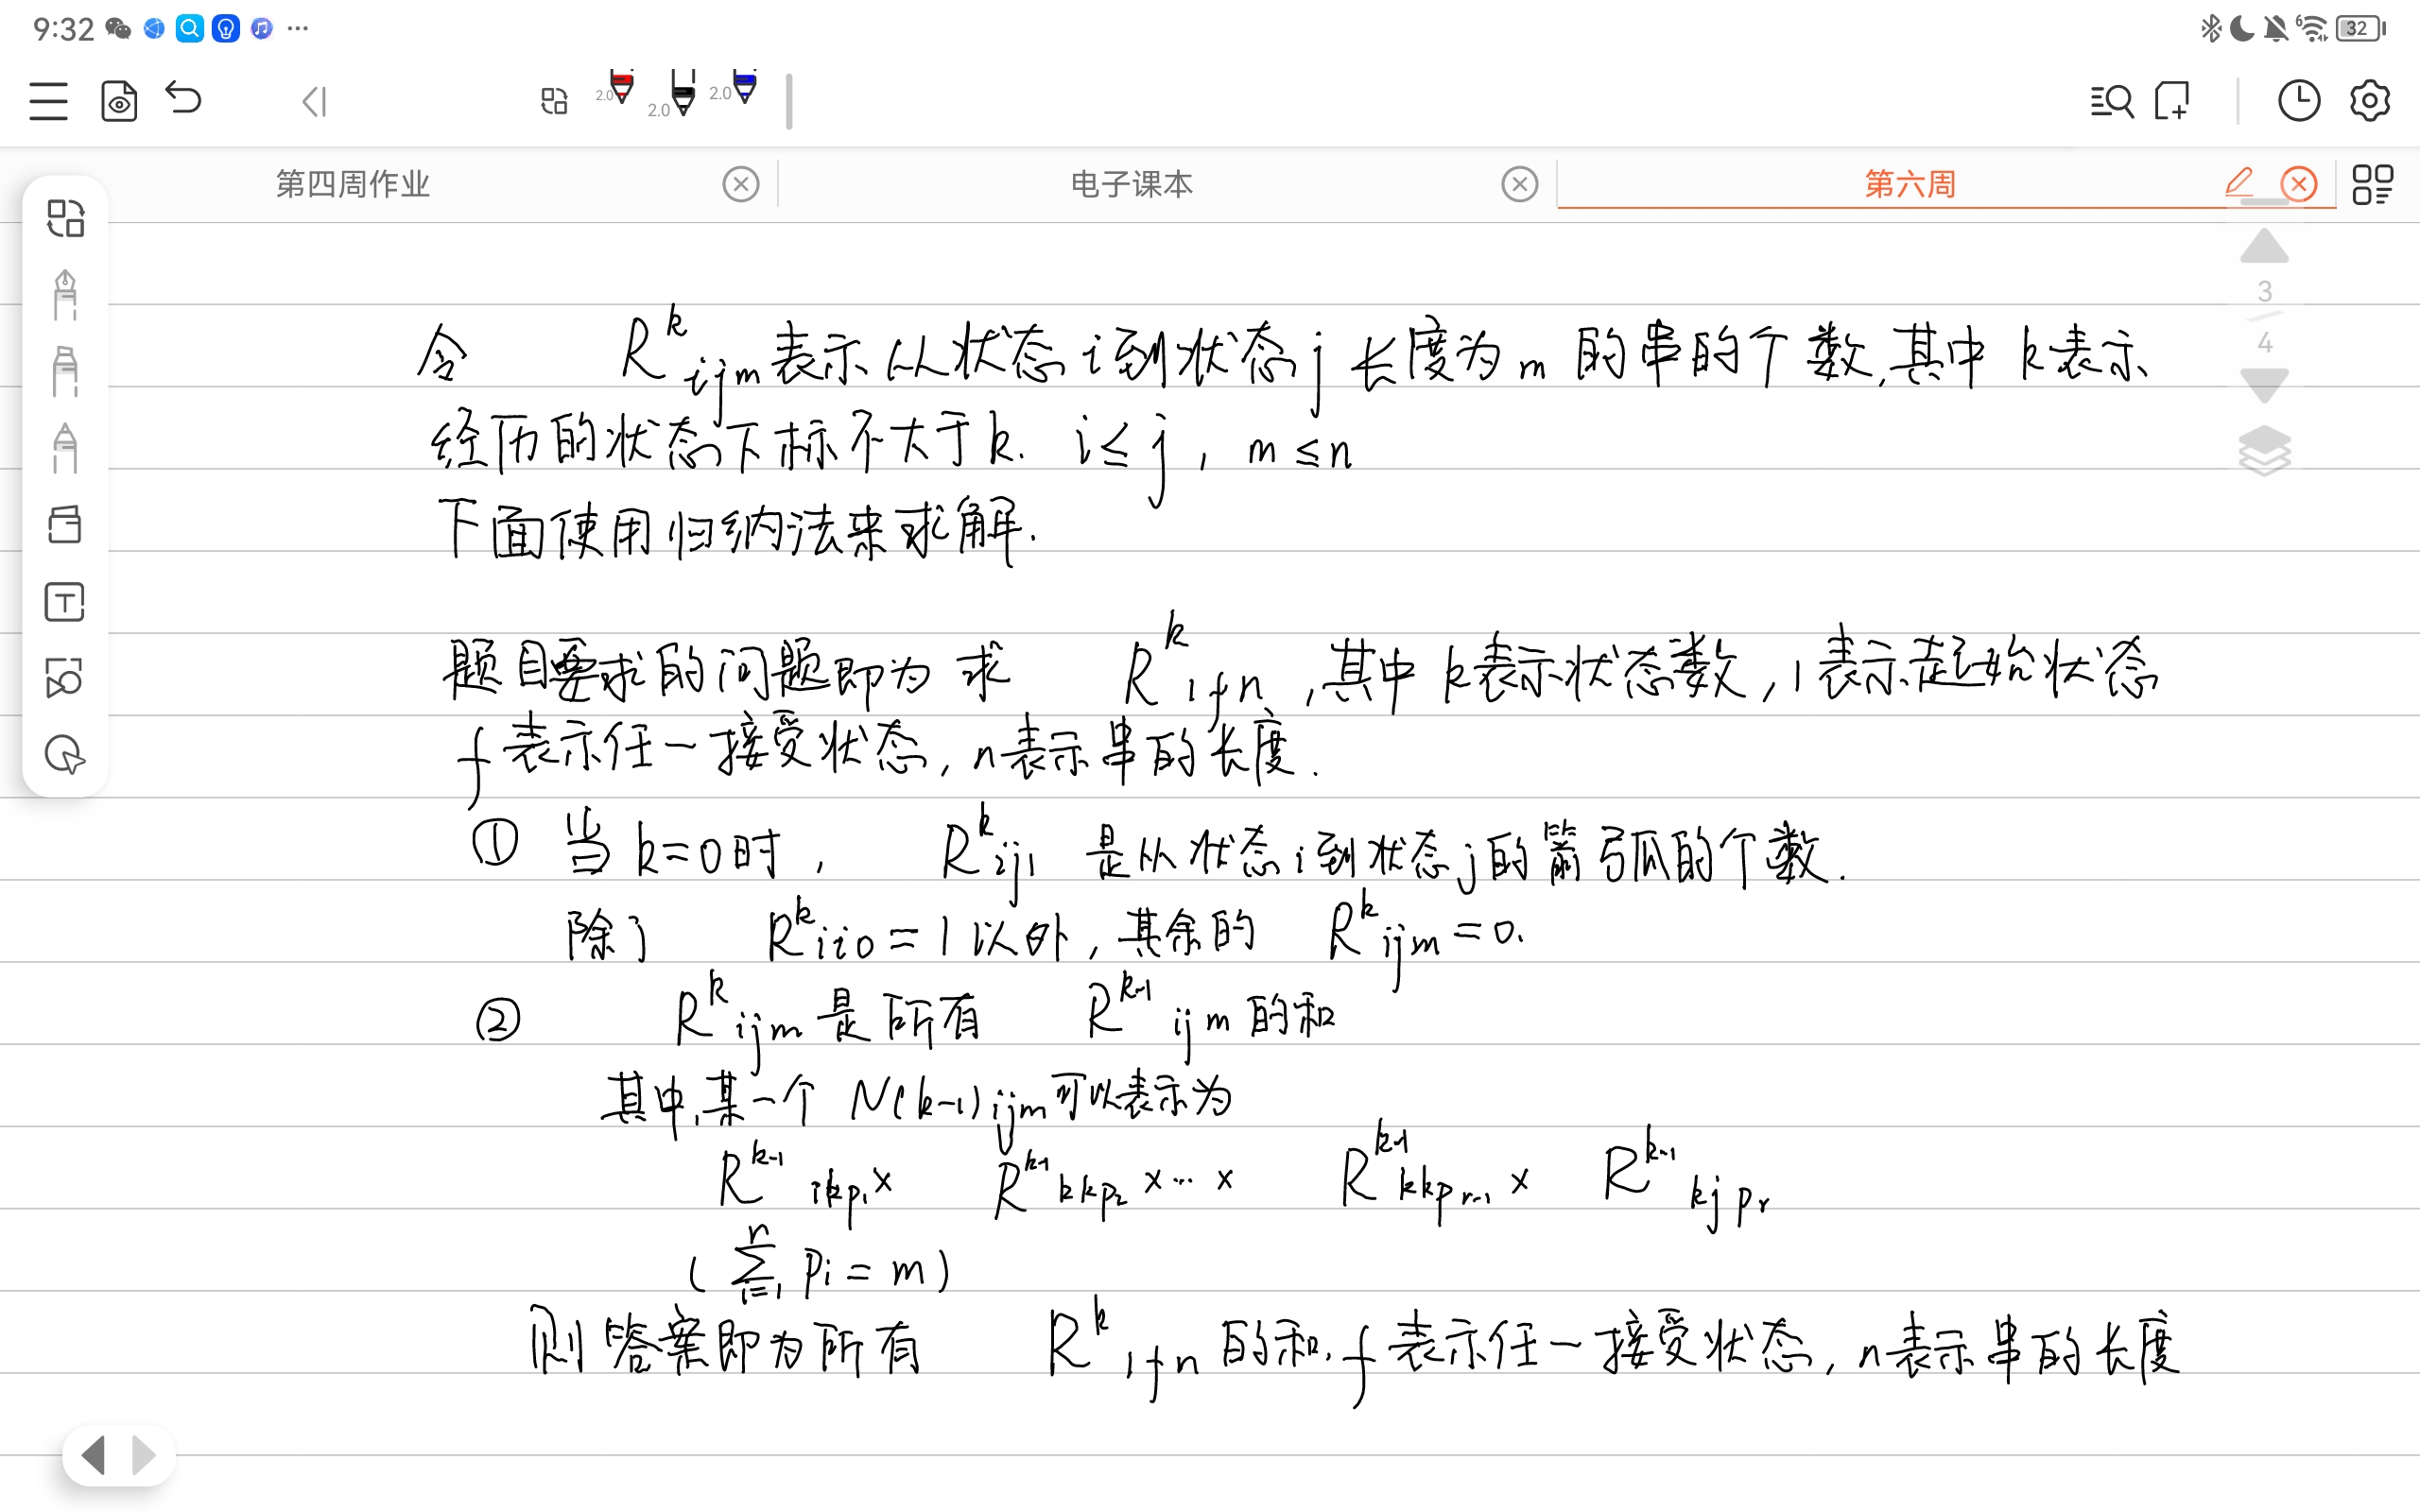 9:32 ··· 6 32
2.0 2.0 2.0
第四周作业 电子课本 第六周
3
4
令 R^k_{ijm}表示从状态i到状态j长度为m的串的个数,其中k表示
经历的状态下标不大于k. i≤j, m≤n
下面使用归纳法来求解.
题目要求的问题即为求 R^k_{1fn},其中k表示状态数,1表示起始状态
f表示任一接受状态,n表示串的长度.
① 当k=0时, R^k_{ij1} 是从状态i到状态j的箭弓弧的个数.
除了 R^k_{ii0}=1以外,其余的 R^k_{ijm}=0.
② R^k_{ijm}是所有 R^{k-1}_{ijm}的和
其中,某一个 N(k-1)_{ijm}可以表示为
R^{k-1}_{ikp_1}× R^{k-1}_{kkp_2}×···× R^{k-1}_{kkp_{r-1}}× R^{k-1}_{kjp_r}
(∑_{i=1}^{r} p_i=m)
则答案即为所有 R^k_{1fn}的和,f表示任一接受状态,n表示串的长度